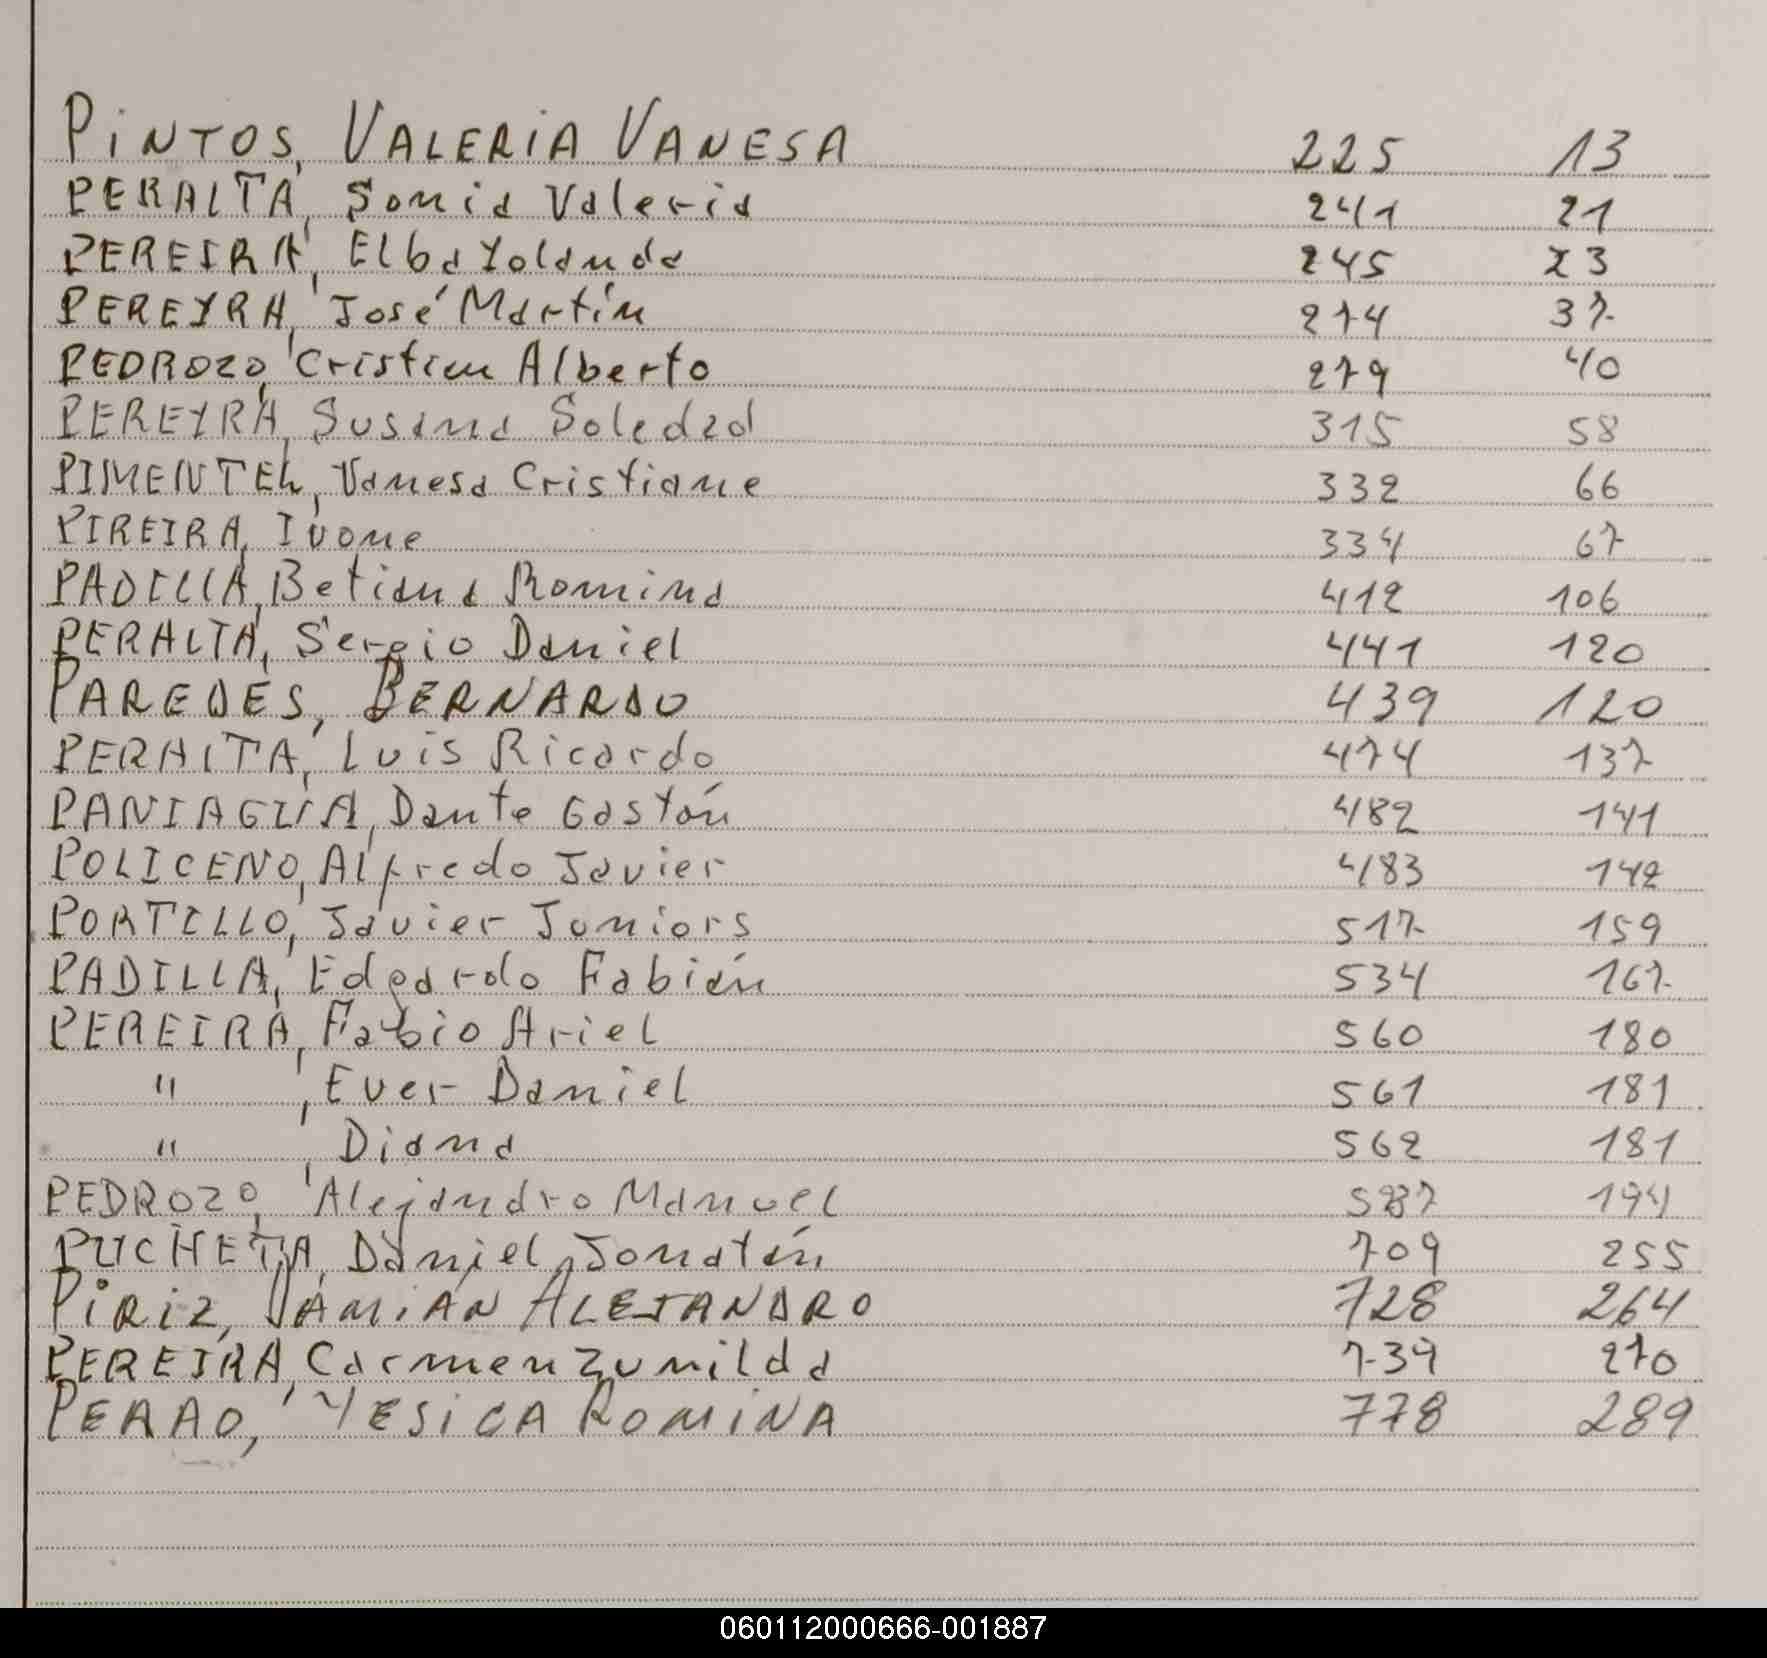 PiNTOS, VALERiA VANESA 225 13
PERALTA, Sonia Valeria 241 21
PEREIRA, Elba Yolanda 245 23
PEREYRA, José Martín 274 37
PEDROZO, Cristian Alberto 279 40
PEREYRA, Susana Soledad 315 58
PIMENTEL, Vanesa Cristiane 332 66
PIREIRA, Ivone 334 67
PADILLA, Betiana Romina 412 106
PERALTA, Sergio Daniel 441 120
PAREDES, BERNARDO 439 120
PERALTA, Luis Ricardo 474 137
PANIAGUA, Dante Gastón 482 141
POLICENO, Alfredo Javier 483 142
PORTILLO, Javier Juniors 517 159
PADILLA, Edgardo Fabián 534 167
PEREIRA, Fabio Ariel 560 180
" , Ever Daniel 561 181
" , Diana 562 181
PEDROZO, Alejandro Manuel 587 194
PUCHETA, Daniel Jonatán 709 255
PiRiZ, DAMiAN ALEJANDRO 728 264
PEREIRA, Carmen Zunilda 739 270
YESiCA ROMiNA 778 289
060112000666-001887